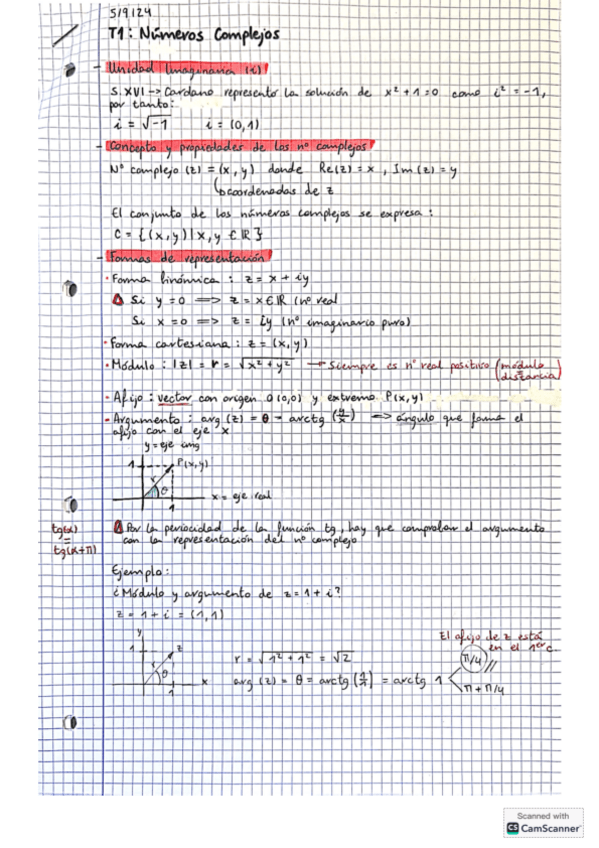 5/9/24
T1: Números Complejos
- Unidad Imaginaria (i)
S. XVI -> Cardano representó la solución de x² + 1 = 0 como i² = -1,
por tanto:
i = √-1   i = (0,1)
- Concepto y propiedades de los nº complejos
Nº complejo (z) = (x, y) donde Re(z) = x, Im(z) = y
↳ coordenadas de z
El conjunto de los números complejos se expresa:
C = {(x, y) | x, y ∈ ℝ}
- Formas de representación
· Forma binómica: z = x + iy
⚠ Si y = 0 => z = x ∈ ℝ (nº real
Si x = 0 => z = iy (nº imaginario puro)
· Forma cartesiana: z = (x, y)
· Módulo: |z| = r = √x² + y² → Siempre es nº real positivo (módulo = distancia)
· Afijo: vector con origen O(0,0) y extremo P(x,y)
· Argumento: arg (z) = θ = arctg (y/x) => ángulo que forma el
afijo con el eje x
y = eje img
1
P(x,y)
r
θ
x = eje real
1
tg(α)
=
tg(α+π)
⚠ Por la periocidad de la función tg, hay que comprobar el argumento
con la representación del nº complejo
Ejemplo:
¿Módulo y argumento de z = 1 + i?
z = 1 + i = (1,1)
y
1
z
r
θ
x
1
El afijo de z está
en el 1er c.
r = √1² + 1² = √2
arg (z) = θ = arctg (1/1) = arctg 1
π/4
π + π/4
Scanned with
CS CamScanner